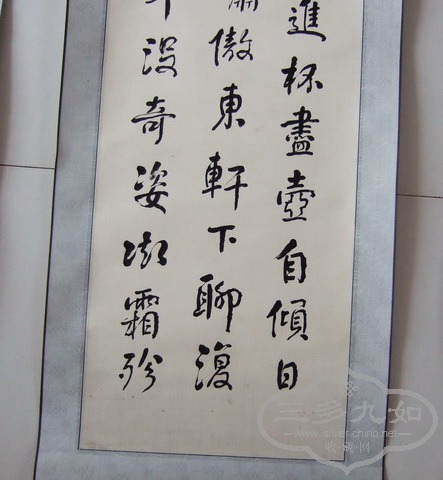 進杯盡壺自傾日
傲東軒下聊復
沒奇姿凝霜殄
三多九如
www.silver-china.net